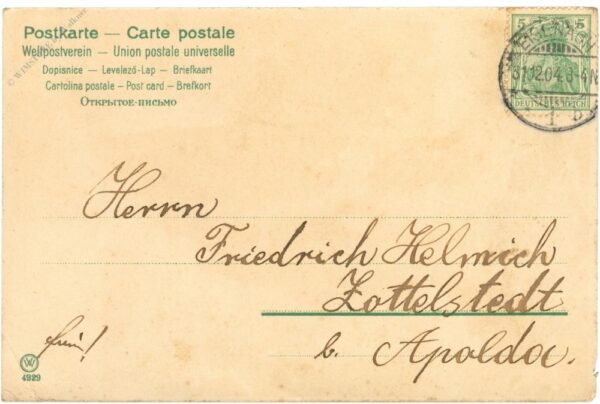 Postkarte — Carte postale
Weltpostverein — Union postale universelle
Dopisnice — Levelező-Lap — Briefkaart
Cartolina postale — Post card — Brefkort
Открытое-письмо
5 5
31.12.04.3-4N
DEUTSCHES REICH
1 b
Herrn
Friedrich Helmich
Zottelstedt
b. Apolda.
frei!
W
4929